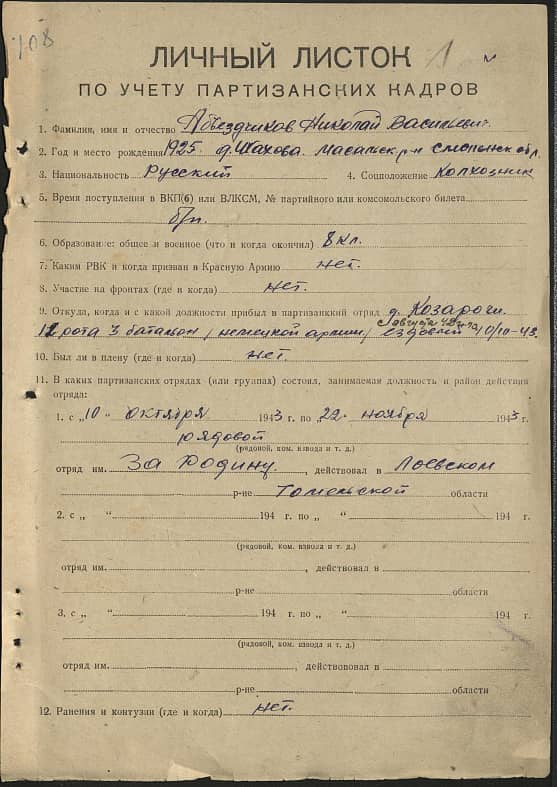 708
1
ЛИЧНЫЙ ЛИСТОК
ПО УЧЕТУ ПАРТИЗАНСКИХ КАДРОВ
1. Фамилия, имя и отчество Объездчиков Николай Васильевич.
2. Год и место рождения 1925. д. Шахова. Масальск. р-н Смоленск обл.
3. Национальность Русский 4. Соцположение Колхозник
5. Время поступления в ВКП(б) или ВЛКСМ, № партийного или комсомольского билета
б/п.
6. Образование: общее и военное (что и когда окончил) 8 кл.
7. Каким РВК и когда призван в Красную Армию нет.
8. Участие на фронтах (где и когда) нет.
9. Откуда, когда и с какой должности прибыл в партизанский отряд д. Козароги.
с августа 42 г. по
12 рота 3 батальон / немецкой армии / ездовой 10/10-43.
10. Был ли в плену (где и когда) нет.
11. В каких партизанских отрядах (или группах) состоял, занимаемая должность и район действия
отряда:
1. с „10" октября 1943 г. по „22" ноября 1943 г.
рядовой
(рядовой, ком. взвода и т. д.)
отряд им. За Родину, действовал в Лоевском
р-не Гомельской области
2. с „ " 194 г. по „ " 194 г.
(рядовой, ком. взвода и т. д.)
отряд им. , действовал в
р-не области
3. с „ " 194 г. по „ " 194 г.
(рядовой, ком. взвода и т. д.)
отряд им. , действовал в
р-не области
12. Ранения и контузии (где и когда) нет.